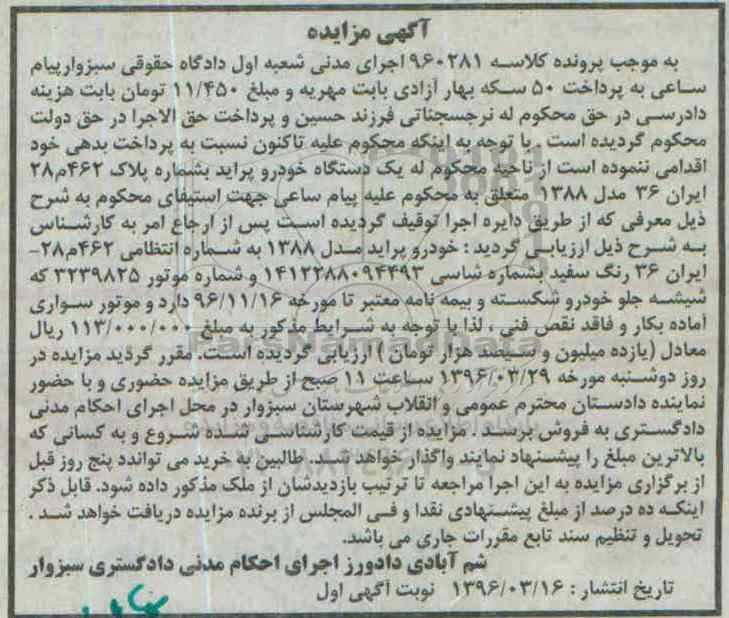 آگهی مزایده
به موجب پرونده کلاسه ۹۶۰۲۸۱ اجرای مدنی شعبه اول دادگاه حقوقی سبزوارپیام
ساعی به پرداخت ۵۰ سکه بهار آزادی بابت مهریه و مبلغ ۱۱/۴۵۰ تومان بابت هزینه
دادرسی در حق محکوم له نرجسجناتی فرزند حسین و پرداخت حق الاجرا در حق دولت
محکوم گردیده است . با توجه به اینکه محکوم علیه تاکنون نسبت به پرداخت بدهی خود
اقدامی ننموده است از ناحیه محکوم له یک دستگاه خودرو پراید بشماره پلاک ۴۶۲م۲۸
ایران ۳۶ مدل ۱۳۸۸ متعلق به محکوم علیه پیام ساعی جهت استیفای محکوم به شرح
ذیل معرفی که از طریق دایره اجرا توقیف گردیده است پس از ارجاع امر به کارشناس
به شرح ذیل ارزیابی گردید : خودرو پراید مدل ۱۳۸۸ به شماره انتظامی ۴۶۲م۲۸-
ایران ۳۶ رنگ سفید بشماره شاسی ۱۴۱۲۲۸۸۰۹۴۴۹۳ و شماره موتور ۳۲۳۹۸۲۵ که
شیشه جلو خودرو شکسته و بیمه نامه معتبر تا مورخه ۹۶/۱۱/۱۶ دارد و موتور سواری
آماده بکار و فاقد نقص فنی ، لذا با توجه به شرایط مذکور به مبلغ ۱۱۳/۰۰۰/۰۰۰ ریال
معادل (یازده میلیون و سیصد هزار تومان ) ارزیابی گردیده است. مقرر گردید مزایده در
روز دوشنبه مورخه ۱۳۹۶/۰۳/۲۹ ساعت ۱۱ صبح از طریق مزایده حضوری و با حضور
نماینده دادستان محترم عمومی و انقلاب شهرستان سبزوار در محل اجرای احکام مدنی
دادگستری به فروش برسد . مزایده از قیمت کارشناسی شده شروع و به کسانی که
بالاترین مبلغ را پیشنهاد نمایند واگذار خواهد شد. طالبین به خرید می تواندد پنج روز قبل
از برگزاری مزایده به این اجرا مراجعه تا ترتیب بازدیدشان از ملک مذکور داده شود. قابل ذکر
اینکه ده درصد از مبلغ پیشنهادی نقدا و فی المجلس از برنده مزایده دریافت خواهد شد .
تحویل و تنظیم سند تابع مقررات جاری می باشد.
شم آبادی دادورز اجرای احکام مدنی دادگستری سبزوار
تاریخ انتشار : ۱۳۹۶/۰۳/۱۶ نوبت آگهی اول
ParsNamadData